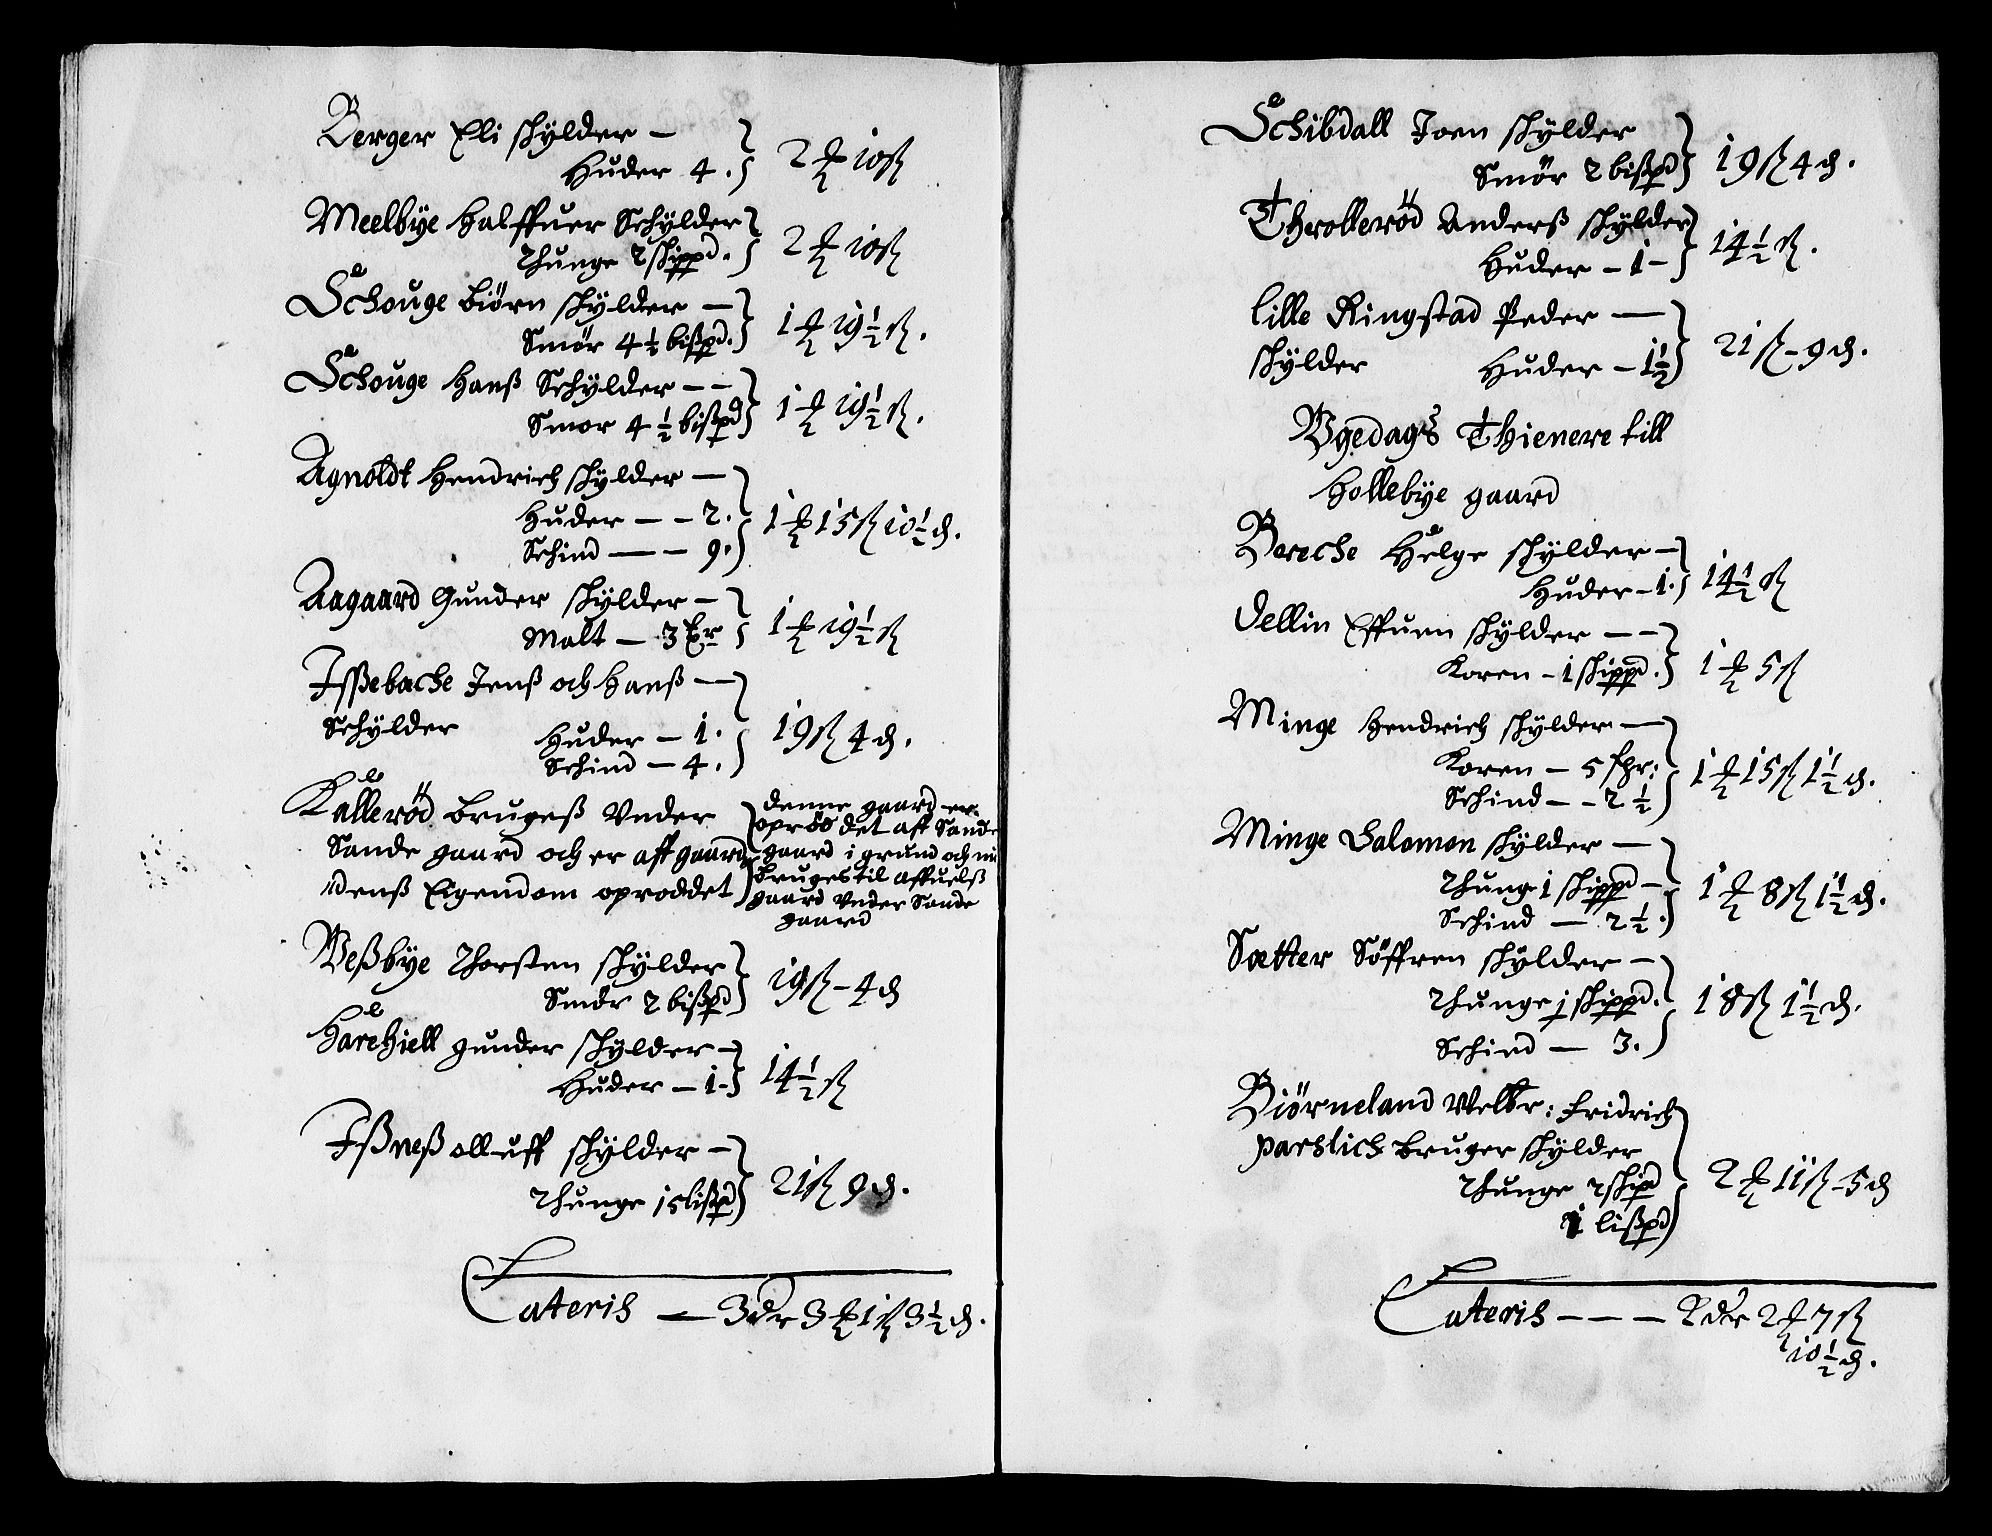 Berger Eli skÿlder –
Huder 4. 2 ₰ 10 ß
Meelbÿe Halffuer Schÿlder
Thunge 2 skippd. 2 ₰ 10 ß
Schouge biörn skÿlder –
Smör 4½ bißpd. 1 ₰ 19½ ß.
Schouge Hanß Schÿlder – –
Smor 4½ bißpd 1 ₰ 19½ ß.
Agnoldt Hendrich skÿlder –
Huder – – 2.
Schind – – 9. 1 ₰ 15 ß 10½ d.
Aagaard Gunder skÿlder –
Malt – 3 1 ₰ 19½ ß
Ißebache Jenß och Hanß –
Schÿlder Huder – 1.
Schind – 4. 19 ß 4 d.
Kalleröd brugeß Vnder
Sande gaard och er aff gaard
denß Eigendom oproddet
denne gaard er
oprödet aff Sande
gaard i grund och nu
bruges til affuelß
gaard Vnder Sande
gaard
Veßbÿe Thorsten skÿlder
Smör 2 bißpd 19 ß – 4 d
Harehiell gunder skÿlder –
Huder – 1 – 14½ ß
Ißneß olluff skÿlder –
Thunge 15 lißpd 21 ß 9 d.
Lateris – 3 dr 3 ₰ 1 ß 3½ d.
Schibdall Joen skÿlder
Smör 2 bißpd 19 ß 4 d.
Throlleröd Anderß skÿlder
Huder – 1 – 14½ ß.
lille Ringstad Peder –
skÿlder Huder – 1½ 21 ß – 9 d.
Vgedags Thienere till
Hollebÿe gaard
Bereche Helge skÿlder –
Huder – 1. 14½ ß
Dellin Effuen skÿlder – –
Koren – 1 skippd. 1 ₰ 5 ß
Minge Hendrich skÿlder –
Koren – 5 spr:
Schind – – 2½ 1 ₰ 15 ß 1½ d.
Minge Salomon skÿlder –
Thung 1 skippd –
Schind – 2½. 1 ₰ 8 ß 1½ d.
Sætter Söffren skÿlder –
Thunge j skippd.
Schind – 3. 18 ß 1½ d.
Biörneland Velbr: Fridrich
parslich bruger skÿlder
Thunge 2 skipd
1 lißpd 2 ₰ 11 ß – 5 d
Lateris – – – 2 dr 2 ₰ 7 ß
10½ d.